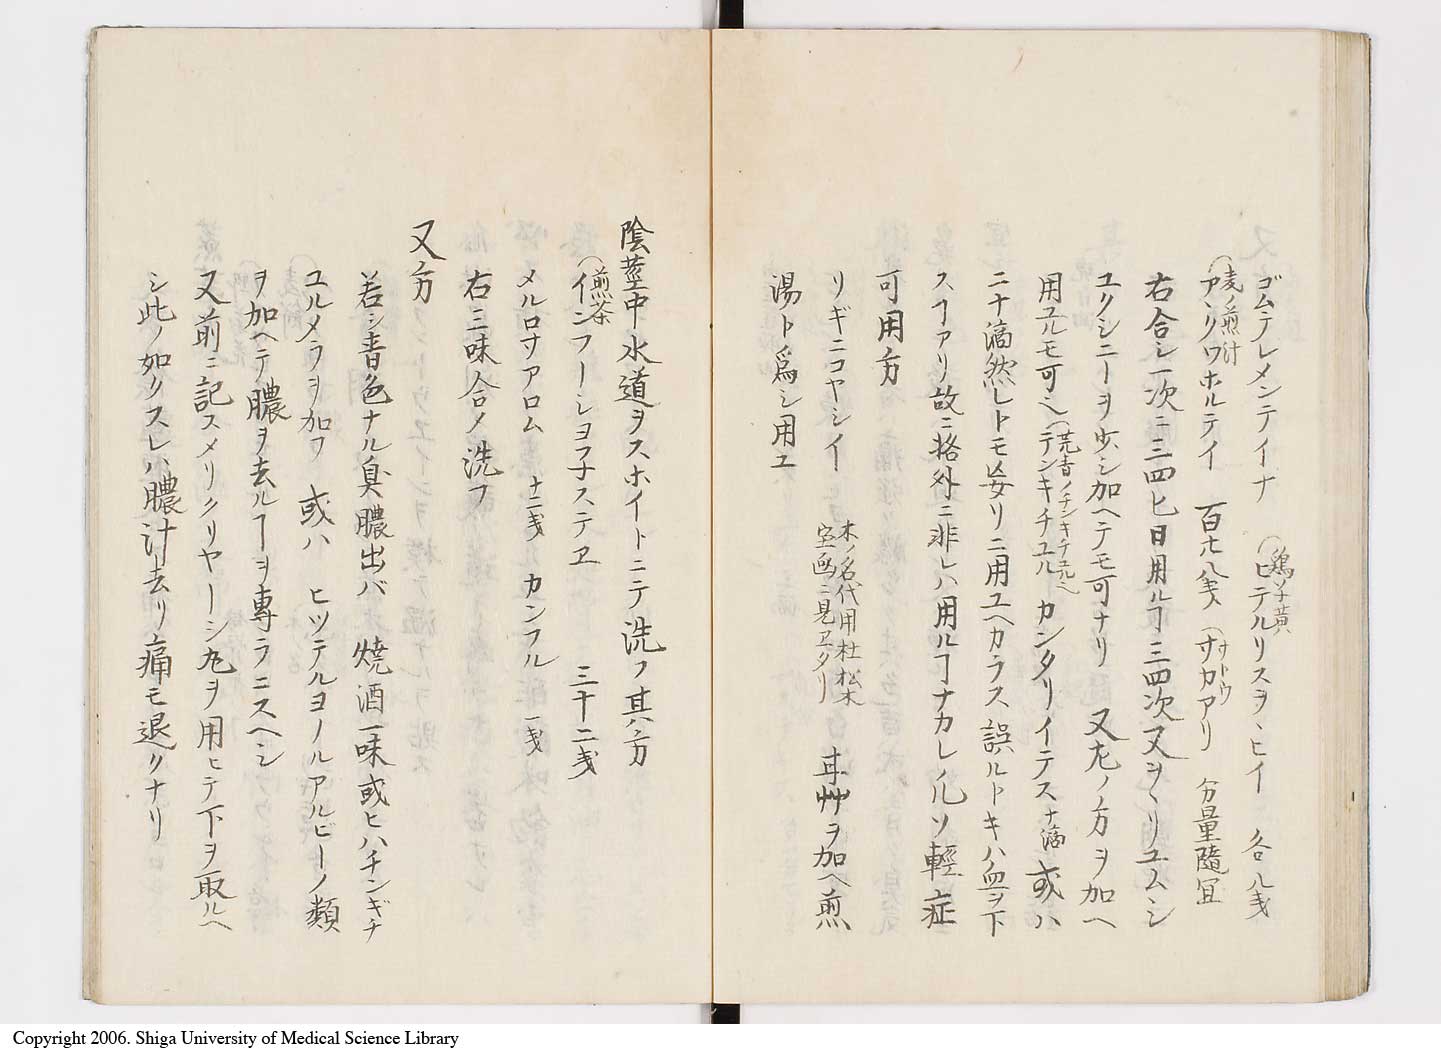 ゴムテレメンテイナ　(鶏子黄)ヒテルリスヲヽヒイ　各八戔
(麦ノ煎汁)アンクワホルテイ　百廿八戔　(サトウ)サカアリ　分量隨冝
右合シ一次ニ三四匕日用ルヿ三四次又ヲヽリユムシ
ユクシニーヲ少シ加ヘテモ可ナリ　又左ノ方ヲ加ヘ
用ユルモ可也(芫青ノチンキチユル也)テンキチユル　カンタリイーテス十滴或ハ
二十滴然レトモ妄リニ用ユヘカラス誤ルトキハ血ヲ下
スヿアリ故ニ格外ニ非レハ用ルヿナカレ凡ソ輕症
可用方
リギニコヤシイ　木ノ名代用杜松木
宝函ニ見ヱタリ　甘艸ヲ加ヘ煎
湯ト爲シ用ユ
陰莖中水道ヲスホイトニテ洗フ其方
(煎茶)インフーシヨ子ステヱ　三十二戔
メルロサアロム　十二戔　カンフル　一戔
右三味合メ洗フ
又方
若シ青色ナル臭膿出バ　焼酒一味或ヒハチンギチ
ユルメラヲ加フ　或ハ　ヒツテルヨノルアルビーノ類
ヲ加ヘテ膿ヲ去ルヿヲ專ラニスヘシ
又前ニ記スメリクリヤーシ丸ヲ用ヒテ下ヲ取ルヘ
シ此ノ如クスレハ膿汁去リ痛モ退クナリ
Copyright 2006. Shiga University of Medical Science Library